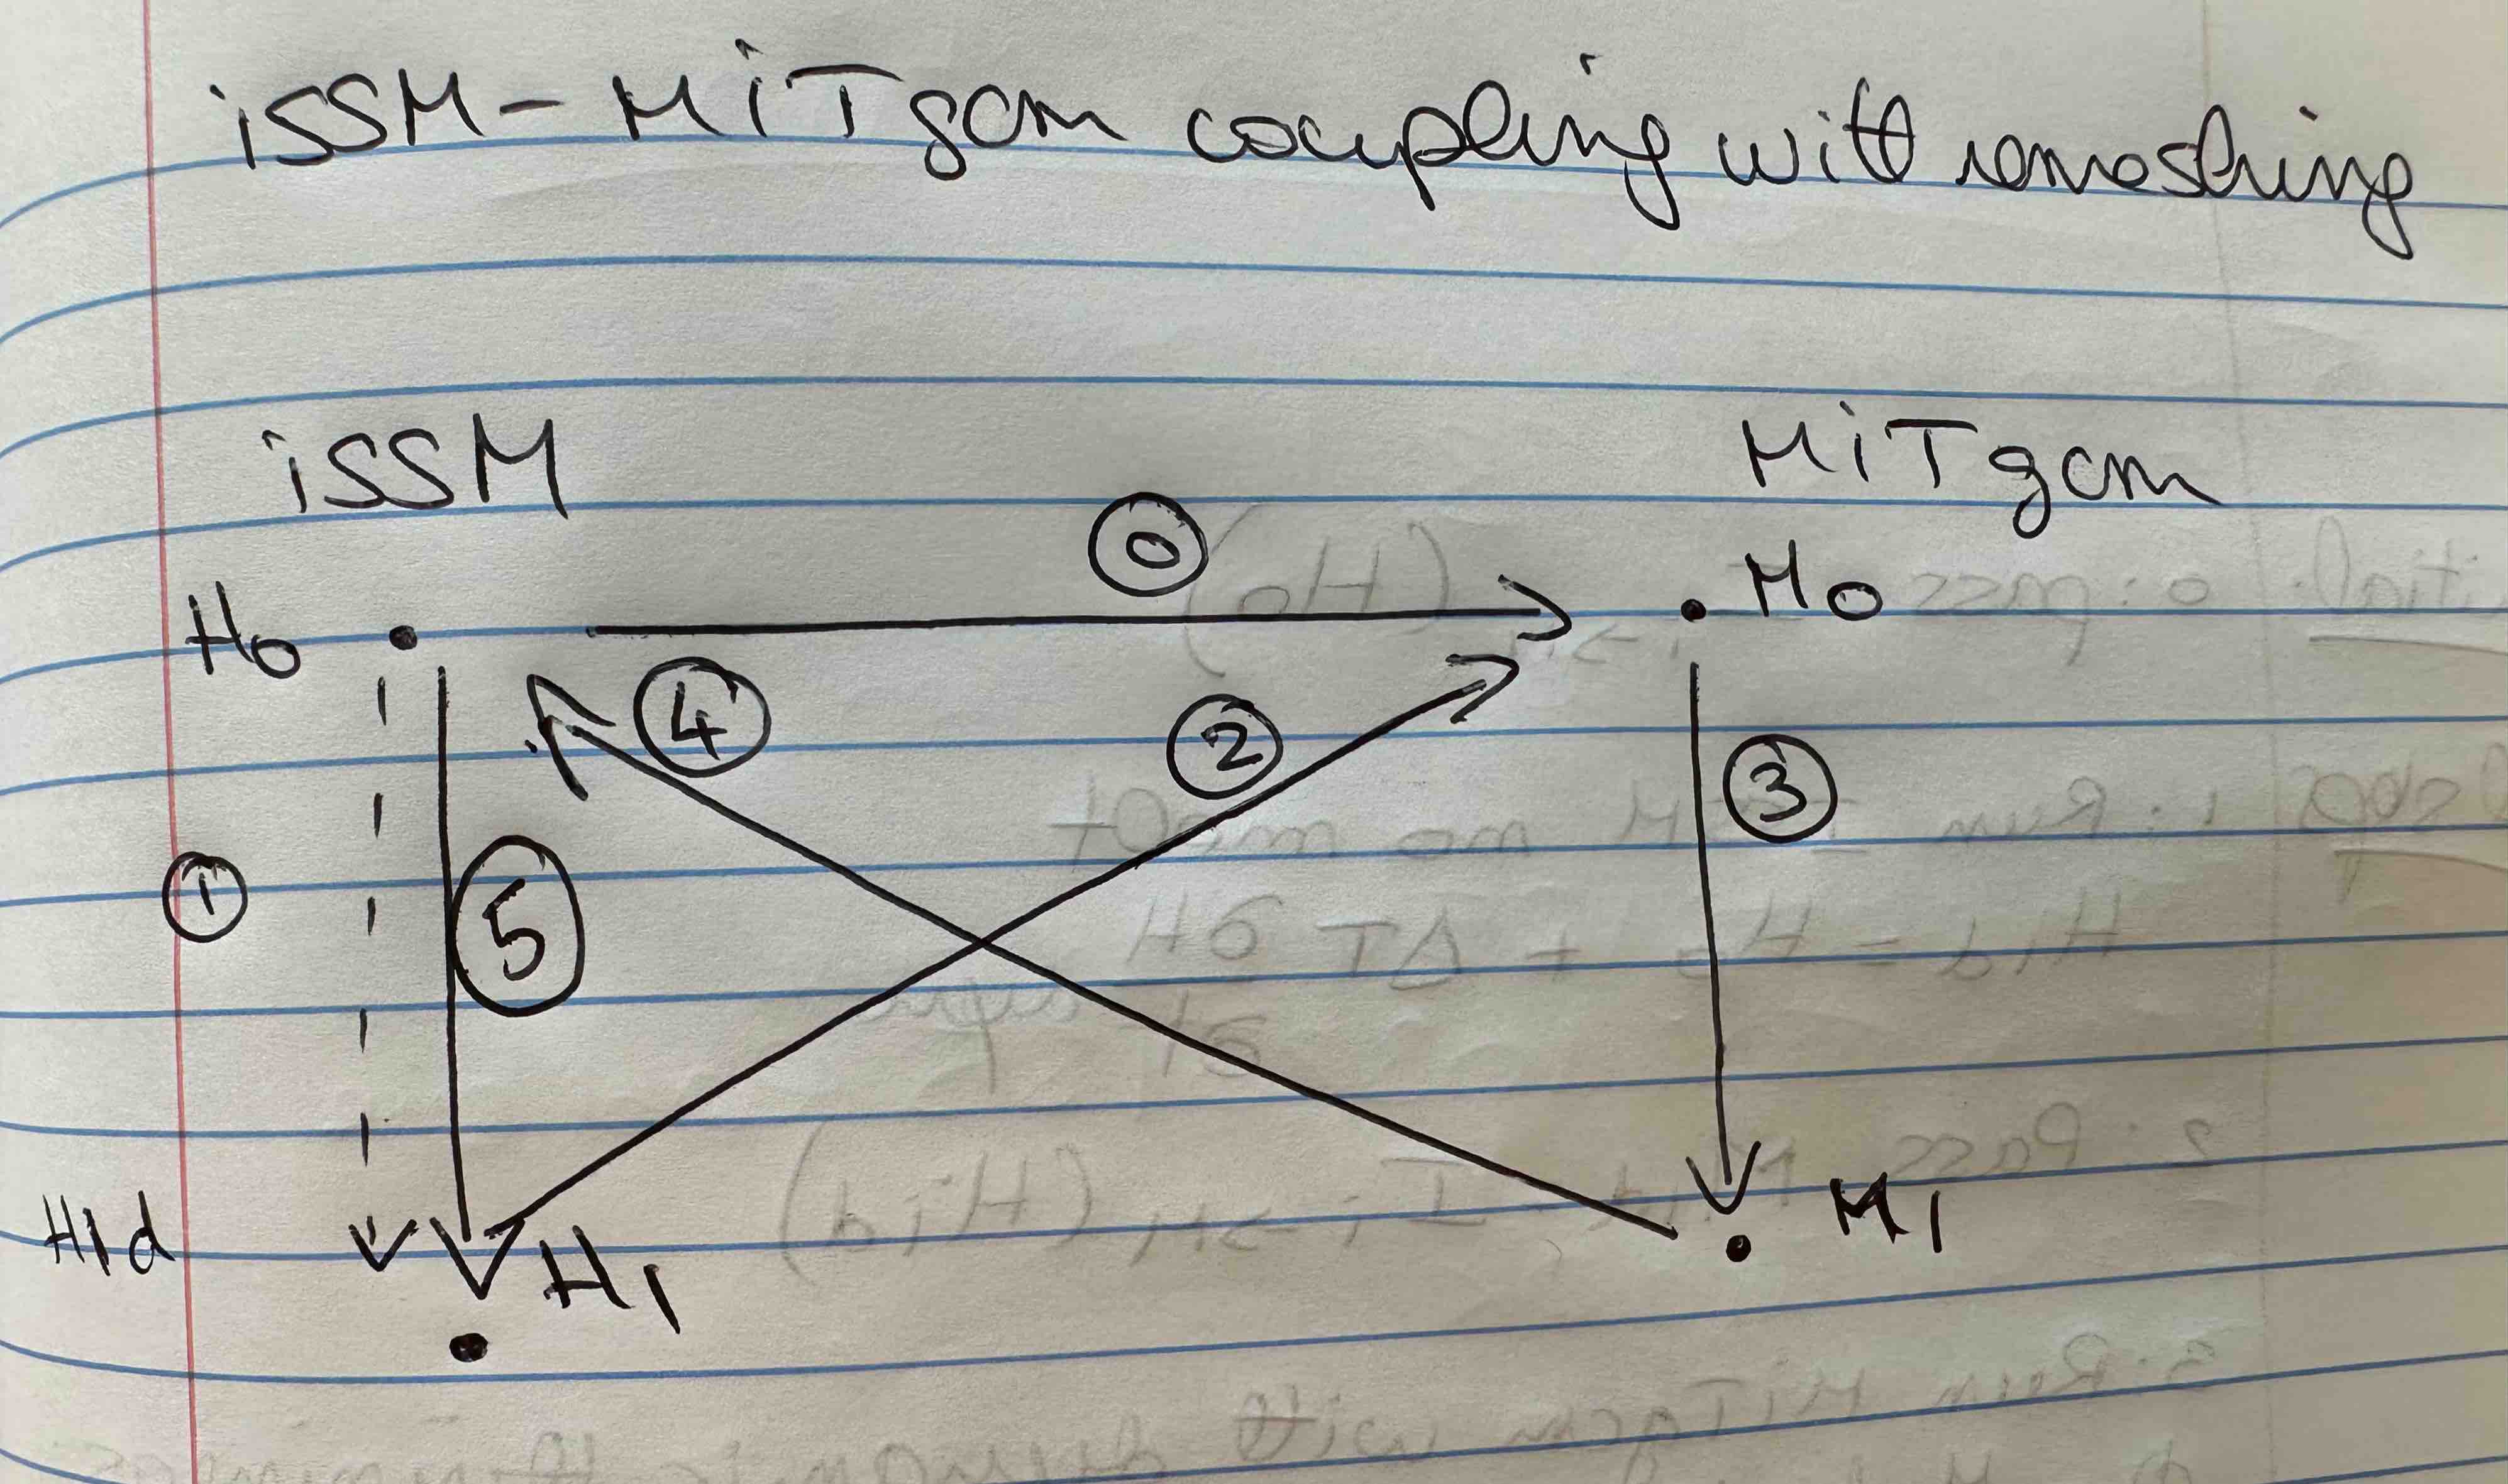 iSSM - MiTgcm coupling with remeshing
iSSM
MiTgcm
0
H0
M0
4
2
3
1
5
H1d
H1
M1